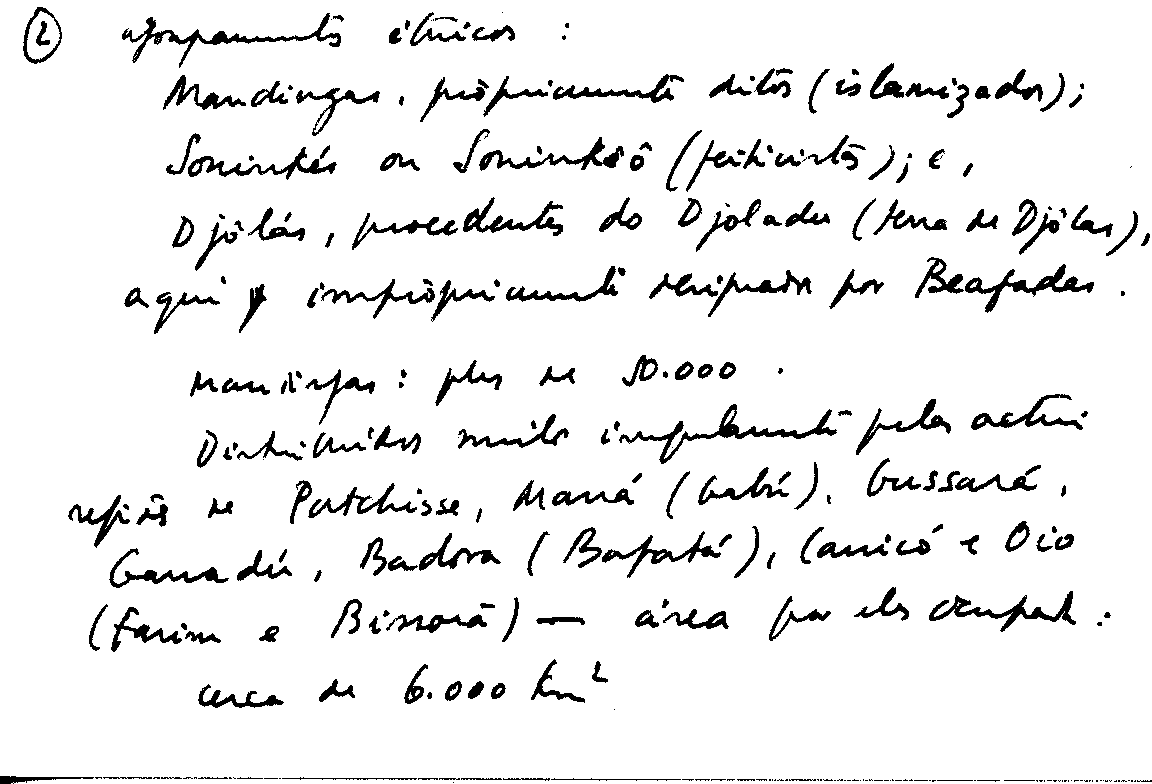 ② agrupamentos étnicos :
Mandingas, pròpriamente ditos (islamizados);
Soninkés ou Soninkéô (feiticistas); e,
Djôlás, procedentes do Djoladu (terra de Djôlas),
aqui impròpriamente designados por Beafadas.
Mandingas : plus de 50.000 .
Distribuídos muito irregularmente pelas actuais
regiões de Patchisse, Maná (Gabú), Gussará,
Ganadú, Badora (Bafatá), Canicó e Oio
(Farim e Bissorã) — área por eles ocupada :
cerca de 6.000 Km²